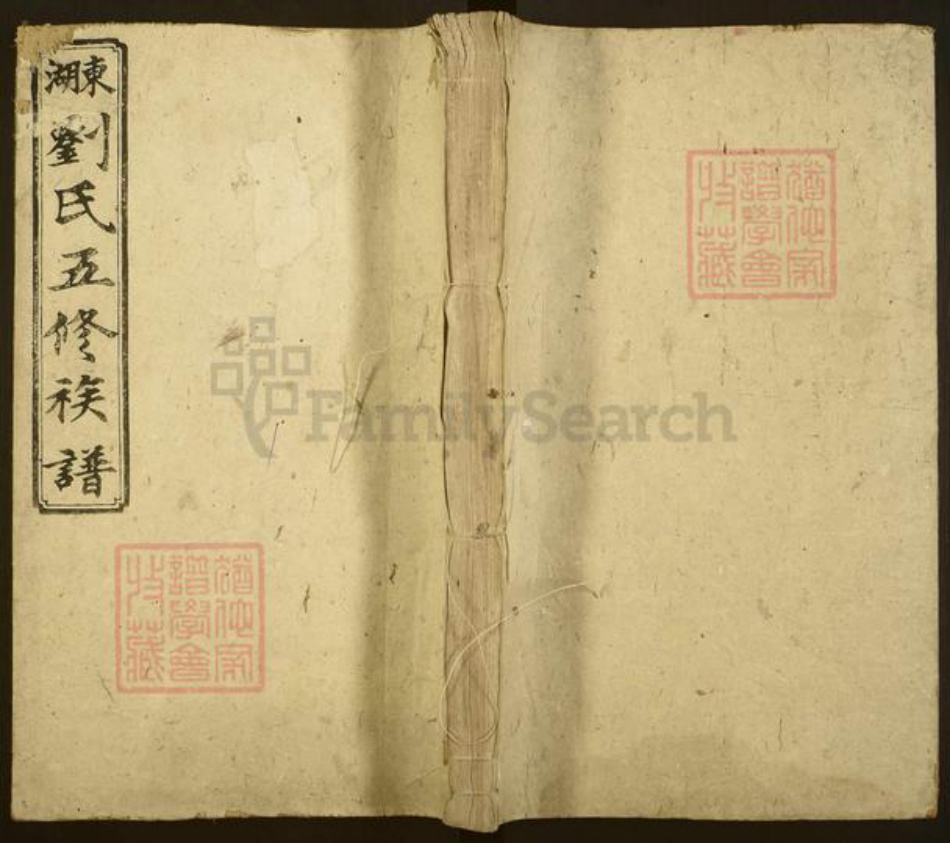 東湖
劉氏五修族譜
猶他家
譜學會
收藏
猶他家
譜學會
收藏
FamilySearch